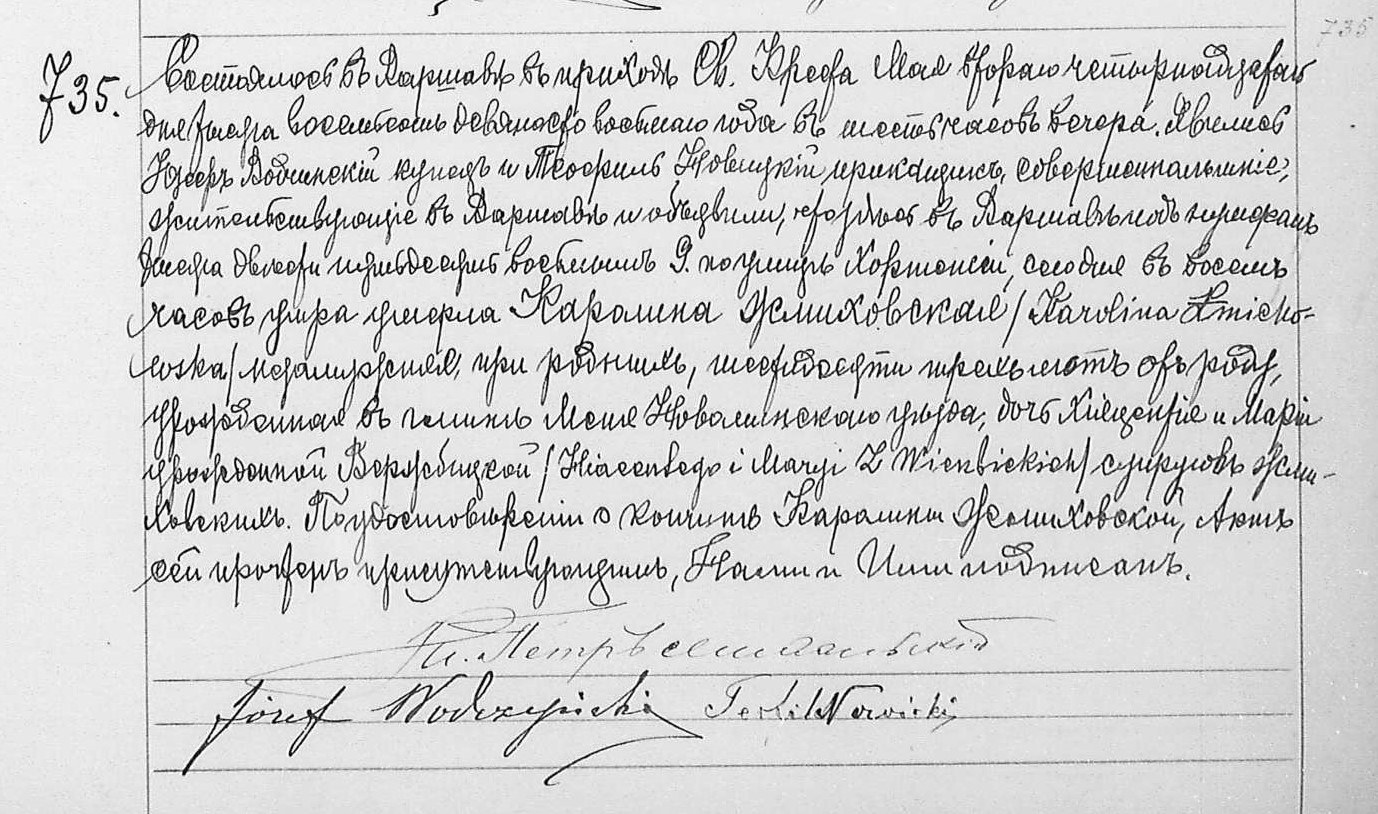 735
735. Состоялось въ Варшавѣ въ приходѣ Св. Креста Мая втораго четырнадцатаго
дня тысяча восемьсотъ девяносто восьмаго года въ шесть часовъ вечера. Явились
Іосифъ купецъ и Теофиль Новицкій прикащикъ, совершеннолѣтніе,
жительствующіе въ Варшавѣ и объявили, что здѣсь въ Варшавѣ подъ нумеромъ
тысяча двѣсти пятьдесятъ восьмымъ по улицѣ сегодня въ восемь
часовъ утра умерла Каролина Жмиховская /Karolina Żmicho-
wska/ незамужняя, при родныхъ, шестьдесяти трехъ лѣтъ отъ роду,
урожденная въ уѣзда, дочь и Маріи
урожденной Вержбицкой / i Maryi z Wierzbickich/ супруговъ Жми-
ховскихъ. По удостовѣреніи о кончинѣ Каролины Жмиховской, Актъ
сей прочтенъ присутствующимъ, Нами и Ими подписанъ.
Петръ
Józef Teofil Nowicki